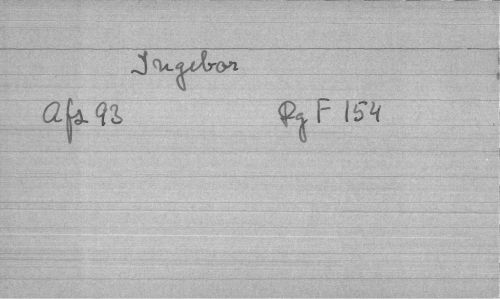 Ingebor
Afs 93 Rg F 154